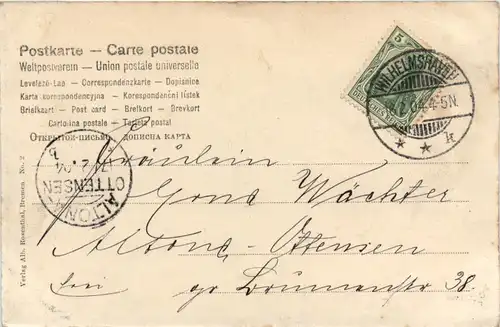 Postkarte — Carte postale
Weltpostverein — Union postale universelle
Levelező-Lap — Correspondenzkarte — Dopisnice
Karta korespondencyjna — Korespondenční lístek
Briefkaart — Post card — Brefkort — Brevkort
Cartolina postale — Tarjeta postal
Открытое письмо, дописна карта
5
WILHELMSHAVEN
04.4-5N.
* * k
ALTONA
OTTENSEN
Fräulein
Wächter
Altona-Ottensen
gr Brunnenstr 38.
Verlag Alb. Rosenthal, Bremen. No. 2